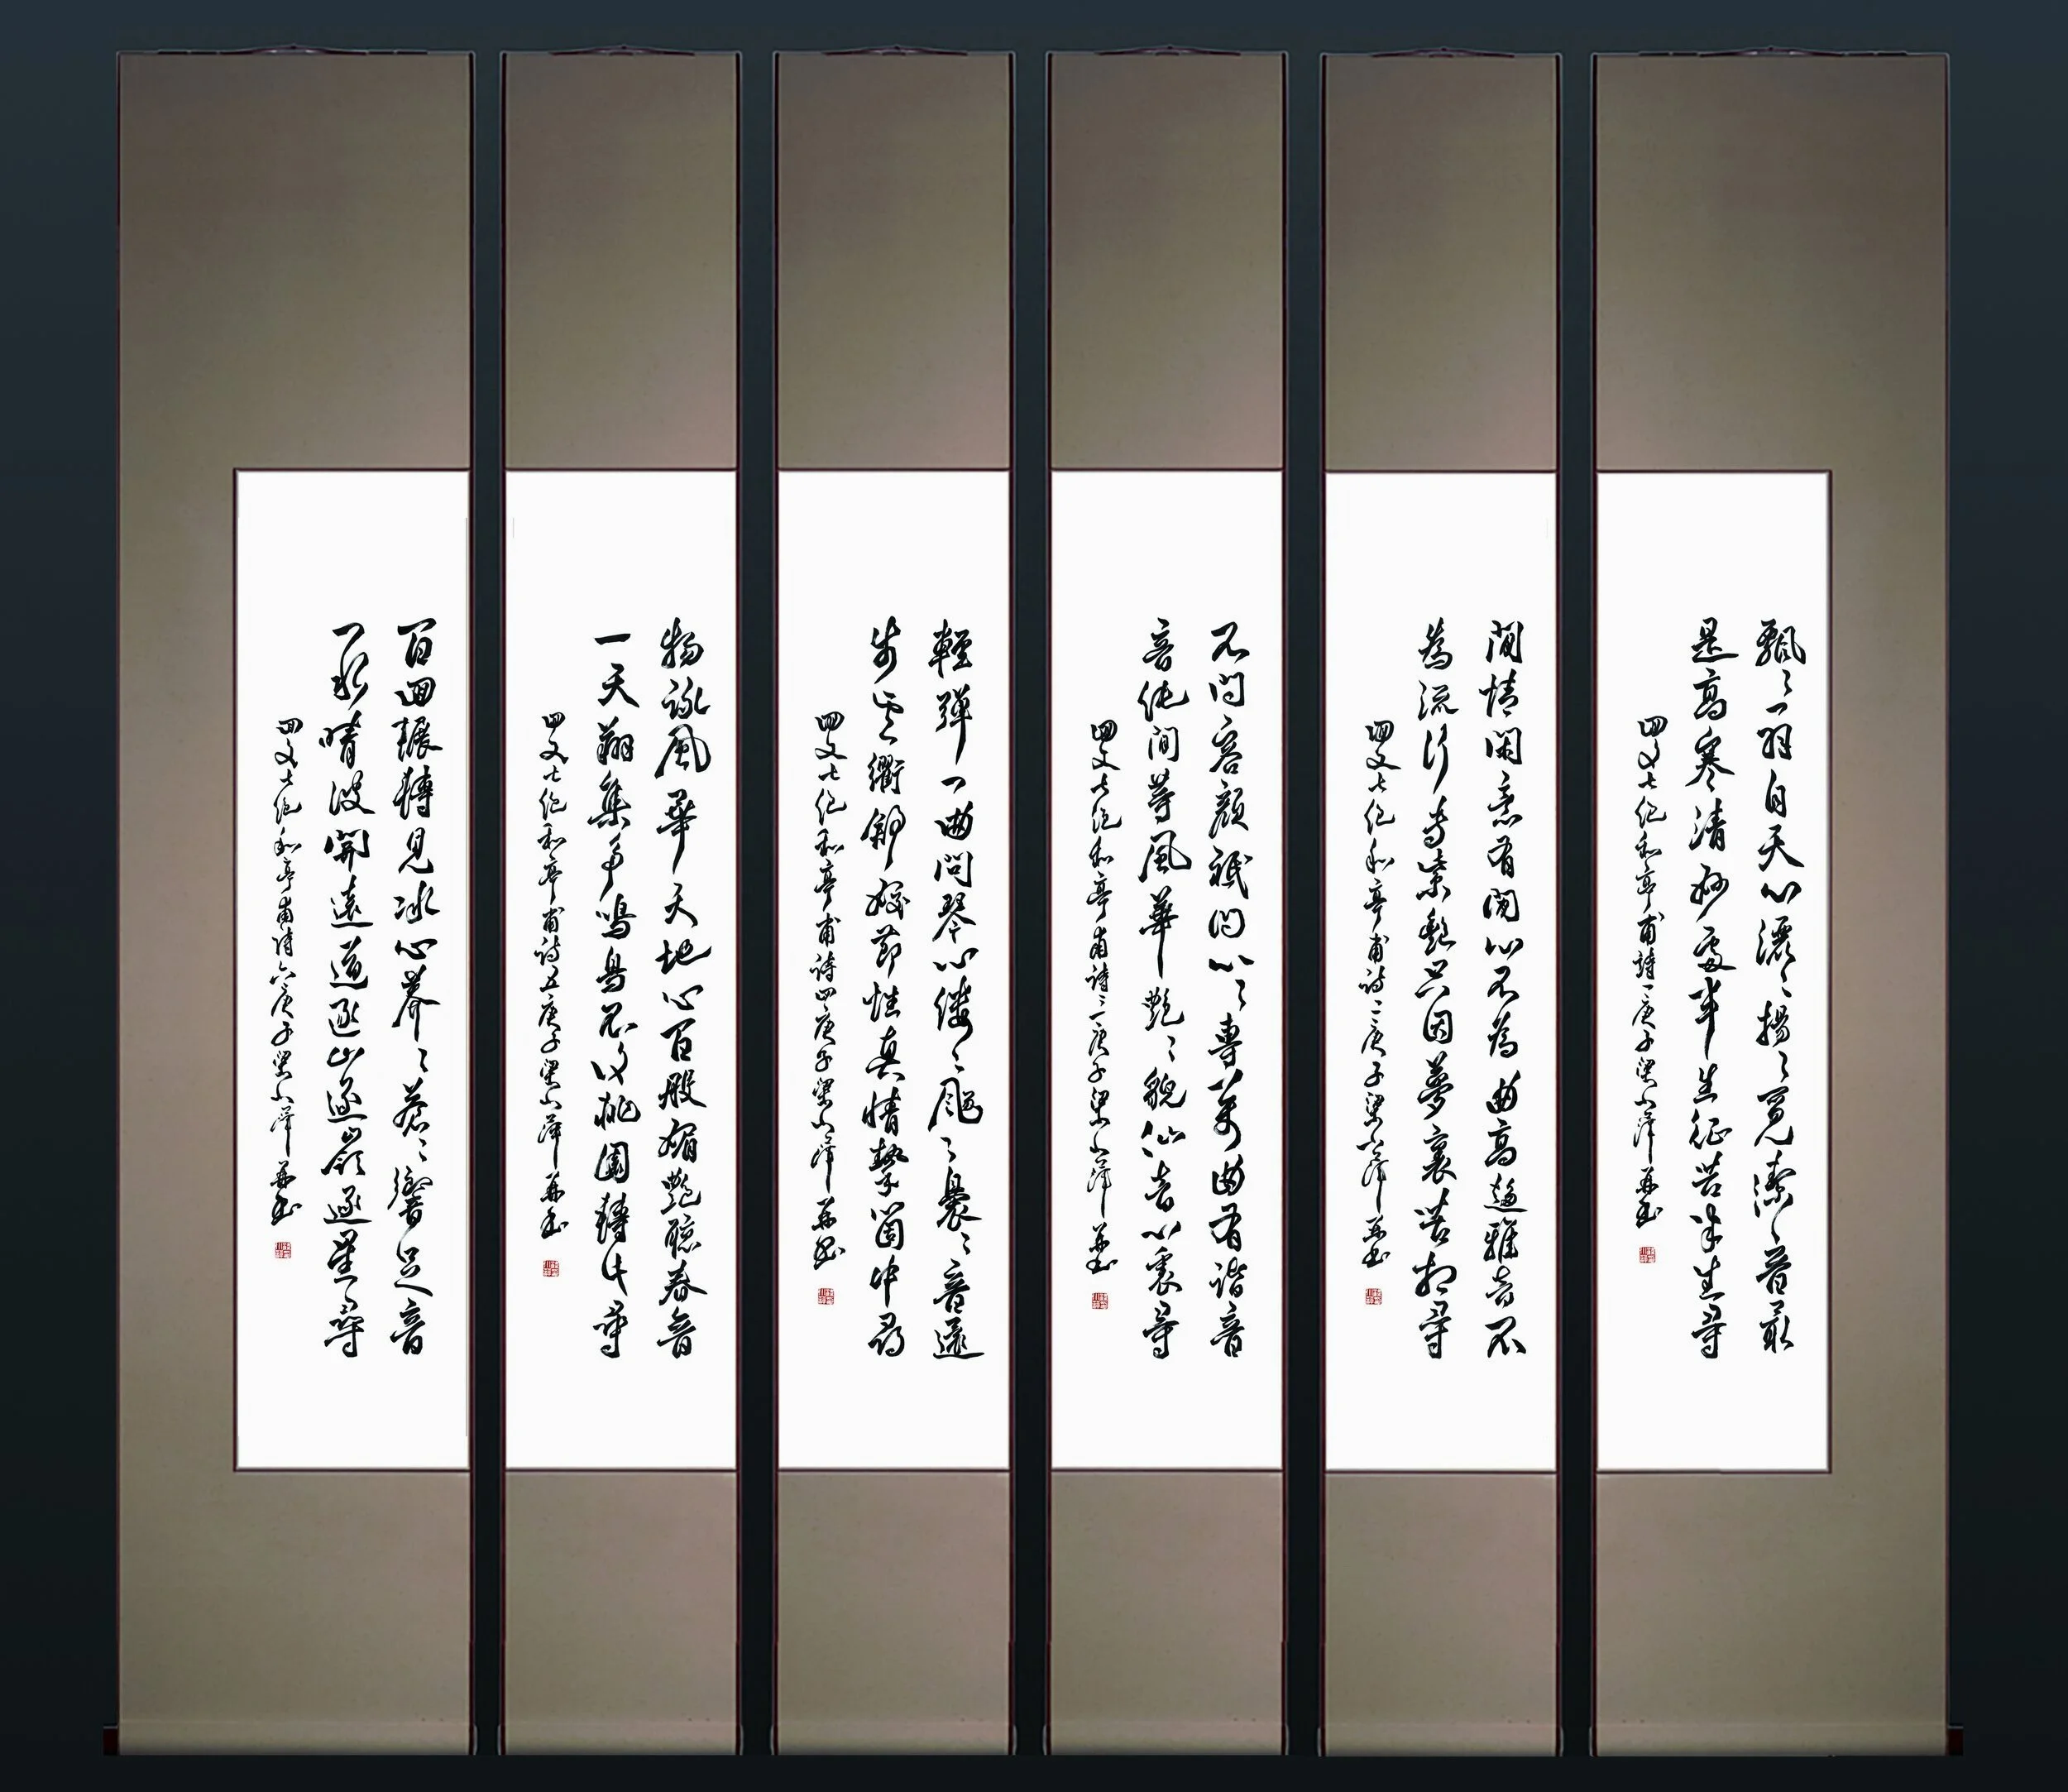 飄〻一羽自天心灑〻揚〻覓潔〻音最
是高寒清妙處半生征苦半生尋
四文七絕和亭甫詩一庚子梁小萍并書
閒情閑意有閒心不為曲高趨雅音不
為流行告素艷只因夢裏苦相尋
四文七絕和亭甫詩二庚子梁小萍并書
不問容顏祇問心〻專萬曲有諧音
音純聞等風華艷〻貌仙音心裏尋
四文七絕和亭甫詩三庚子梁小萍并書
輕彈一曲問琴心縷〻飄〻裊〻音遥
步雲衢舒姣節性真情摯箇中尋
四文七絕和亭甫詩四庚子梁小萍并書
物詠風華天地心百般媚艷聽春音
一天翔集爭鳴鳥不待桃園轉化尋
四文七絕和亭甫詩五庚子梁小萍并書
百迴輾轉見冰心莽〻蒼〻響足音
一水晴波開遠道逐山逐嶺逐星尋
四文七絕和亭甫詩六庚子梁小萍并書